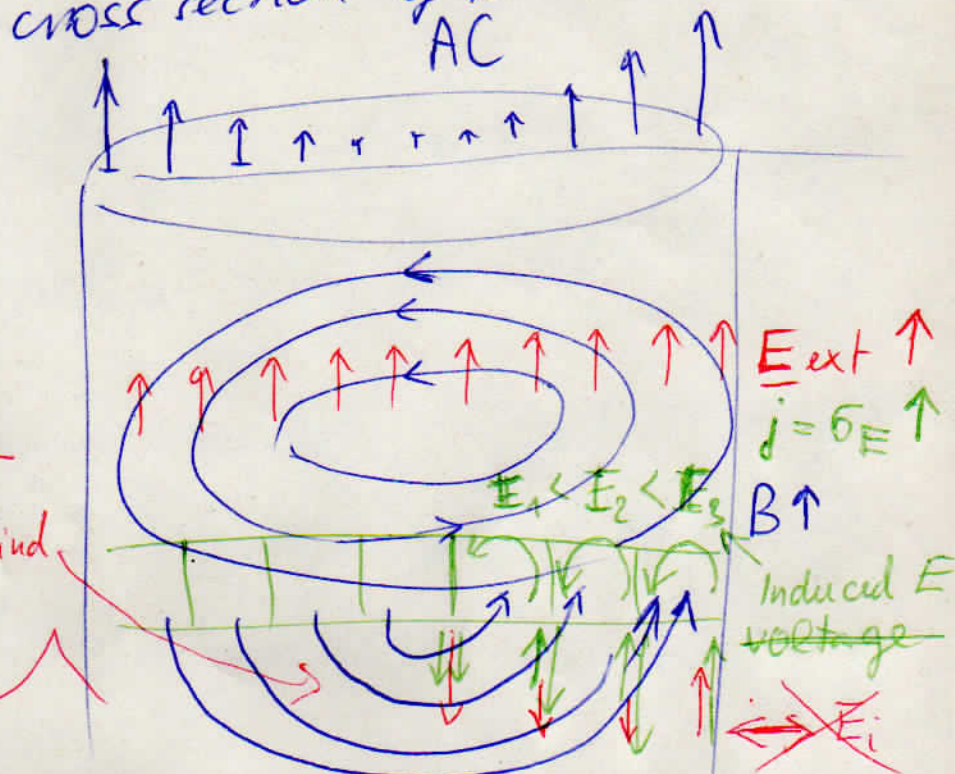 cross section
AC
E ext ↑
j = σE ↑
E₁ < E₂ < E₃
B↑
ind.
Induced E
voltage
Eᵢ